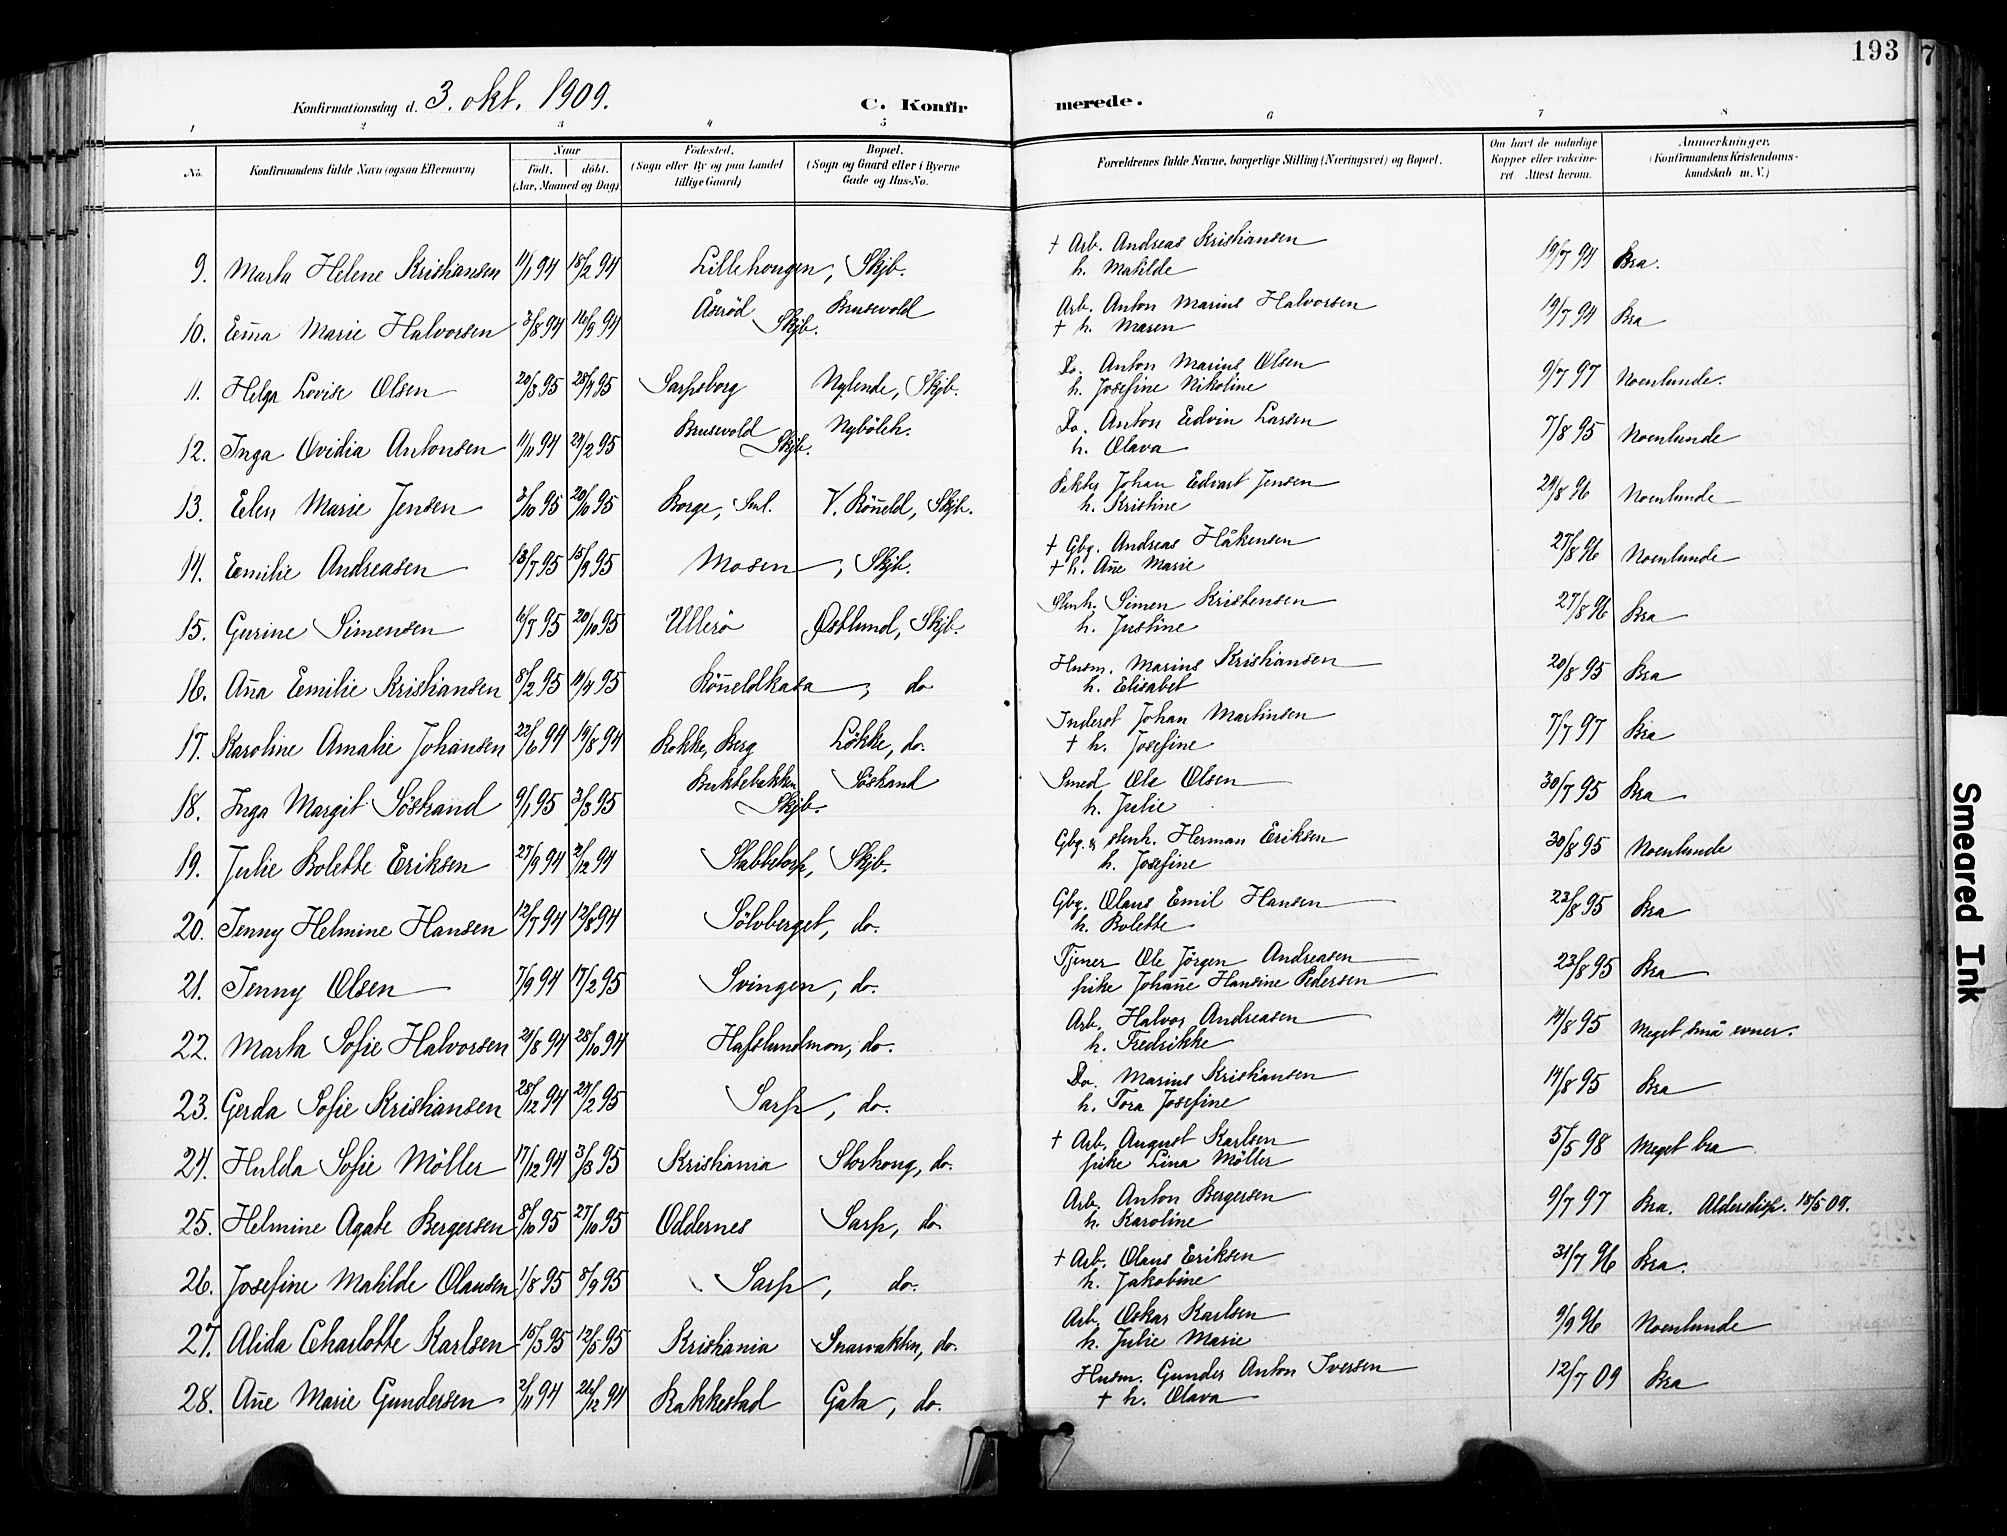 193
7
Konfirmationsdag d. 3. okt. 1909.
C. Konfir
merede.
1 2 3 4 5 6 7 8
No.
Konfirmandens fulde Navn (ogsaa Efternavn)
Naar
født. døbt.
(Aar, Maaned og Dag)
Fødested.
(Sogn eller By og paa Landet
tillige Gaard)
Bopæl.
(Sogn og Gaard eller i Byerne
Gade og Hus-No.
Forældrenes fulde Navne, borgerlige Stilling (Næringsvei) og Bopæl.
Om havt de naturlige
Kopper eller vakcine-
ret Attest herom.
Anmerkninger.
(Konfirmandens Kristendoms-
kundskab m. V.)
9. Marta Helene Kristiansen 11/1 94 18/2 94 Lillehongen, Skjb. † Arb. Andreas Kristiansen
h. Matilde 19/7 94 Bra.
10. Em̄a Marie Halvorsen 3/8 94 16/9 94 Åserød Brusevold
Skjb. Arb. Anton Marius Halvorsen
† h. Maren 19/7 94 Bra
11. Helga Lovise Olsen 20/3 95 28/4 95 Sarpsborg Nylende, Skjb. Do. Anton Marius Olsen
h. Josefine Nikoline 9/7 97 Noenlunde.
12. Inga Ovidia Antonsen 11/11 94 24/2 95 Brusevold Nybøleh.
Skjb. Do. Anton Edvin Larsen
h. Olava 7/8 95 Noenlunde
13. Elen Marie Jensen 3/10 95 20/10 95 Borge, Sml. V. Rön̄eld, Skjb. Pakter Johan Edvart Jensen
h. Kristine 29/8 96 Noenlunde
14. Emilie Andreasen 13/7 95 15/9 95 Mosen, Skjb. † Gbg. Andreas Håkensen
† h. An̄e Marie 27/8 96 Noenlunde
15. Gurine Simensen 16/7 95 20/10 95 Ullerø Østlund, Skjb. Slenh. Simen Kristensen
h. Justine 27/8 96 Bra
16. An̄a Emilie Kristiansen 8/2 95 14/4 95 Rön̄eldkasa, do Husm. Marius Kristiansen
h. Elisabet 20/8 95 Bra
17. Karoline Amalie Johansen 22/6 94 19/8 94 Rokke, Berg Løkke, do. Inderst Johan Martinsen
† h. Josefine 7/7 97 Bra
18. Inga Margit Söstrand 9/1 95 3/3 95 Buktebakken Söstrand
Skjb. Smed Ole Olsen
h. Julie 30/7 95 Bra
19. Julie Bolette Eriksen 27/9 94 2/12 94 Stabbetorp, Skjb. Gbg. & slenh. Herman Eriksen
h. Josefine 30/8 95 Noenlunde
20. Jenny Helmine Hansen 12/7 94 12/8 94 Sölvberget, do. Gbg. Olaus Emil Hansen
h. Bolette 23/8 95 Bra
21. Jenny Olsen 7/9 94 17/2 95 Svingen, do. Tjener Ole Jörgen Andreasen
pike Johan̄e Hansine Pedersen 23/8 95 Bra
22. Marta Sofie Halvorsen 21/8 94 28/10 94 Hafslundmon, do. Arb. Halvor Andreasen
h. Fredrikke 14/8 95 Meget små evner.
23. Gerda Sofie Kristiansen 28/12 94 24/2 95 Sarp, do. Do. Marius Kristiansen
h. Tora Josefine 14/8 95 Bra
24. Hulda Sofie Möller 17/12 94 3/3 95 Kristiania Storhong, do. † Arb. August Karlsen
pike Lina Möller 5/5 98 Meget bra
25. Helmine Agate Bergersen 8/10 95 27/10 95 Oddernes Sarp, do Arb. Anton Bergersen
h. Karoline 9/7 97 Bra. Aldersdisp. 18/5 09.
26. Josefine Matilde Olausen 1/8 95 8/9 95 Sarp, do. † Arb. Olaus Eriksen
h. Jakobine 31/7 96 Bra.
27. Alida Charlotte Karlsen 15/3 95 12/5 95 Kristiania Snarvakken, do. Arb. Oskar Karlsen
h. Julie Marie 9/9 96 Noenlunde
28. An̄e Marie Gundersen 2/11 94 26/12 94 Rakkestad Gata, do. Husm. Gunder Anton Iversen
† h. Olava 12/7 09 Bra
Smeared Ink